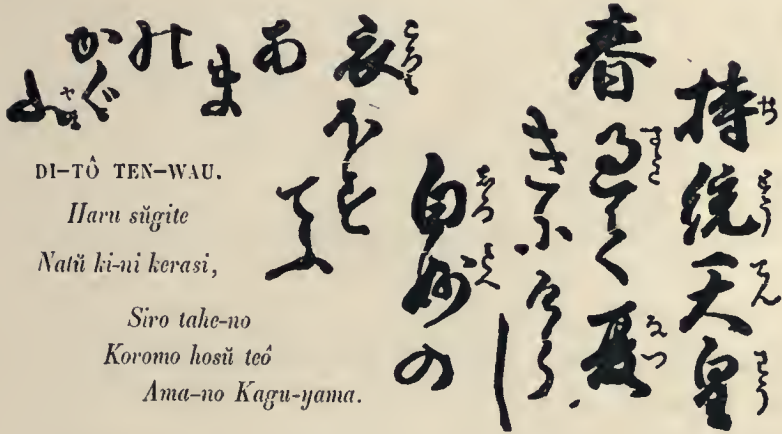 持統天皇
春過て夏
きにけらし
白妙の
衣ほす
てふ
あまのかぐ山
DI–TÔ TEN–WAU.
Haru sŭgite
Natŭ ki-ni kerasi,
Siro tahe-no
Koromo hosŭ teô
Ama-no Kagu-yama.